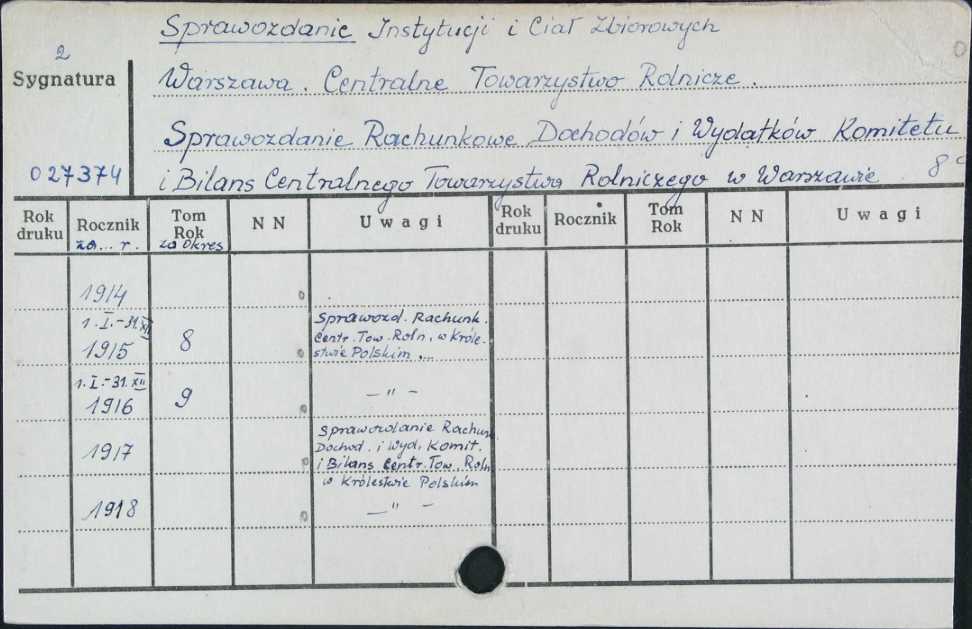 Sprawozdanie Instytucji i Ciał Zbiorowych
2
Sygnatura
Warszawa. Centralne Towarzystwo Rolnicze.
Sprawozdanie Rachunkowe Dochodów i Wydatków Komitetu
027374
i Bilans Centralnego Towarzystwa Rolniczego w Warszawie 8°
Rok druku Rocznik Tom Rok N N Uwagi Rok druku Rocznik Tom Rok N N Uwagi
za... r. za okres
1914
1.I.-31.XII 1915 8 Sprawozd. Rachunk.
Centr. Tow. Roln. w Króle-
stwie Polskim
1.I.-31.XII 1916 9 — " —
1917 Sprawozdanie Rachunk.
Dochod. i Wyd. Komit.
i Bilans Centr. Tow. Roln.
w Królestwie Polskim
1918 — " —